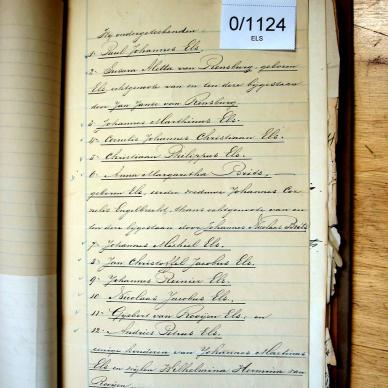 0/1124
ELS
Wij ondergeteekenden
1- Paul Johannes Els.
2- Susara Metta van Rensburg, geboren
Els, echtgenote van en ten dere bijgestaan
door Jan Janse van Rensburg
3- Johannes Marthinus Els.
4- Cornelis Johannes Christiaan Els.
5- Christiaan Philippus Els.
6- Anna Margaretha Brits,
geboren Els, eerder weduwe Johannes Cor-
nelis Engelbrecht, thans echtgenote van en
ten dere bijgestaan door Johannes Nicolaas Brits
7- Johannes Michiel Els.
8- Jan Christoffel Jacobus Els.
9- Johannes Reinier Els.
10. Nicolaas Jacobus Els.
11- Gysbert van Rooijen Els, en
12- Andries Petrus Els.
eenige kinderen van Johannes Martinus
Els en wijlen Wilhelmina Hermina van
Rooijen